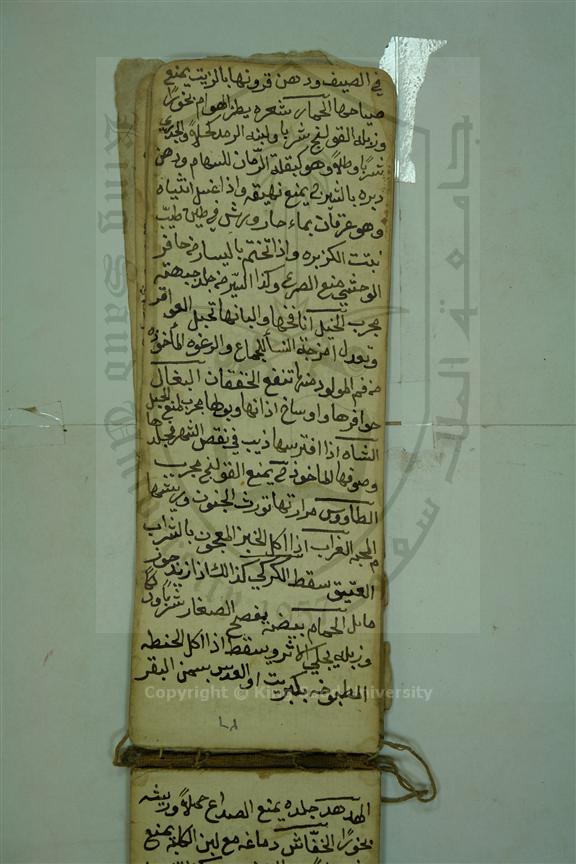 في الصيف ودهن قرونها بالزيت يمنع
صياحها الحمار شعره يطرد الهوام بخورًا
وزبله القولنج شربا ولبنه الرمد كحلاً والجدري
شربًا وطلاً وهو كبقلة الرمان للسهام ودهن
دبره بالشيرج يمنع نهيقه واذا غسل انثياه
وهو عرقان بماء حار ورش في طين طيب
نبتت الكزبره واذا تختم باليسار من حافر
الوحشي منع الصرع وكذا السير من جلد جبهته
مجرب الخيل انافخها والبانها تحبل العواقر
وتعدل امزجة النسا للجماع والرغوه المأخوذه
من فم المولود منها تنفع الخفقان البغال
حوافرها واوساخ اذانها وبولها مجرب لمنع الحبل
الشاه اذا افترسها ذيب في نقص الشهر فجلدها
وصوفها الماخوذ يمنع القولنج مجرب
الطاووس مرارتها تورث الجنون وريشها
المحبه الغراب اذا اكل الخبز المعجون بالشراب
العتيق سقط الكركي كذلك اذا زيد جوز
ماثل الحمام بيضه يفصح الصغار شربًا ودلكًا
وزبله يجلي الاثر ويسقط اذا اكل الحنطه
المطبوخه بكبريت او العدس بسمن البقر
Copyright © King Saud University
الهدهد جلده يمنع الصداع حملاً وريشه
بخورًا الخفاش دماغه مع لبن الكلبه يمنع
King Saud University
جامعة الملك سعود